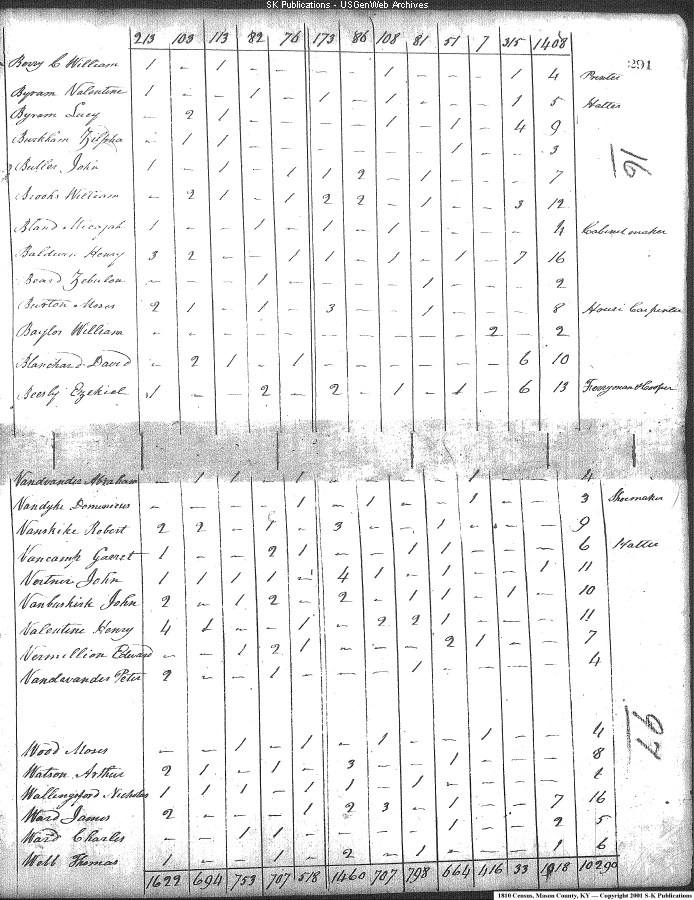 SK Publications - USGenWeb Archives
213 103 113 82 76 173 86 108 81 51 7 315 1408
291
Berry C William 1 - 1 - - - - 1 - - - 1 4 Printer
Byram Valentine 1 - - 1 - 1 - 1 - - - 1 5 Hatter
Byram Lucy - 2 1 - - - - 1 - 1 - 4 9
Burkham Zilpha - 1 1 - - - - - - 1 - - 3
16
Butler John 1 - 1 - 1 1 2 - 1 - - - 7
Brooks William - 2 1 - 1 2 2 - 1 - - 3 12
Bland Micajah 1 - - 1 - 1 - 1 - - - - 4 Cabinet maker
Baldwin Henry 3 2 - - 1 1 - 1 - 1 - 7 16
Beard Zebulon - - - 1 - - - - 1 - - - 2
Burton Moses 2 1 - 1 - 3 - - 1 - - - 8 House Carpenter
Baylor William - - - - - - - - - - 2 - 2
Blanchard David - 2 1 - 1 - - - - - - 6 10
Beesly Ezekiel 1 - - 2 - 2 - 1 - 1 - 6 13 Ferryman & Cooper
Vandvander Abraham - 1 1 - 1 - - - - 1 - - 4
Vandyke Dominicus - - - - 1 - 1 - - 1 - - 3 Shoemaker
Vanskike Robert 2 2 - 1 - 3 - - 1 - - - 9
Vancamp Garret 1 - - 2 1 - - 1 1 - - - 6 Hatter
Vertner John 1 1 1 1 - 4 1 - 1 - - 1 11
Vanbuskirk John 2 - 1 2 - 2 - 1 1 - 1 - 10
Valentine Henry 4 1 - - 1 - 2 2 1 - - - 11
Vermillion Edward - - 1 2 1 - - - 2 1 - - 7
Vandevander Peter 2 - - 1 - - - 1 - - - - 4
97
Wood Moses - - 1 - 1 - 1 - - 1 - - 4
Watson Arthur 2 1 - 1 - 3 - - 1 - - - 8
Wallingsford Nicholas 1 1 1 - 1 1 - 1 - - - -
Ward James 2 - - - 1 2 3 - 1 - - 7 16
Ward Charles - - 1 1 - - - - 1 - - 2 5
Webb Thomas 1 - - 1 - 2 - 1 - - - 1 6
1622 694 753 707 518 1460 707 798 664 416 33 1918 10290
1810 Census, Mason County, KY — Copyright 2001 S-K Publications